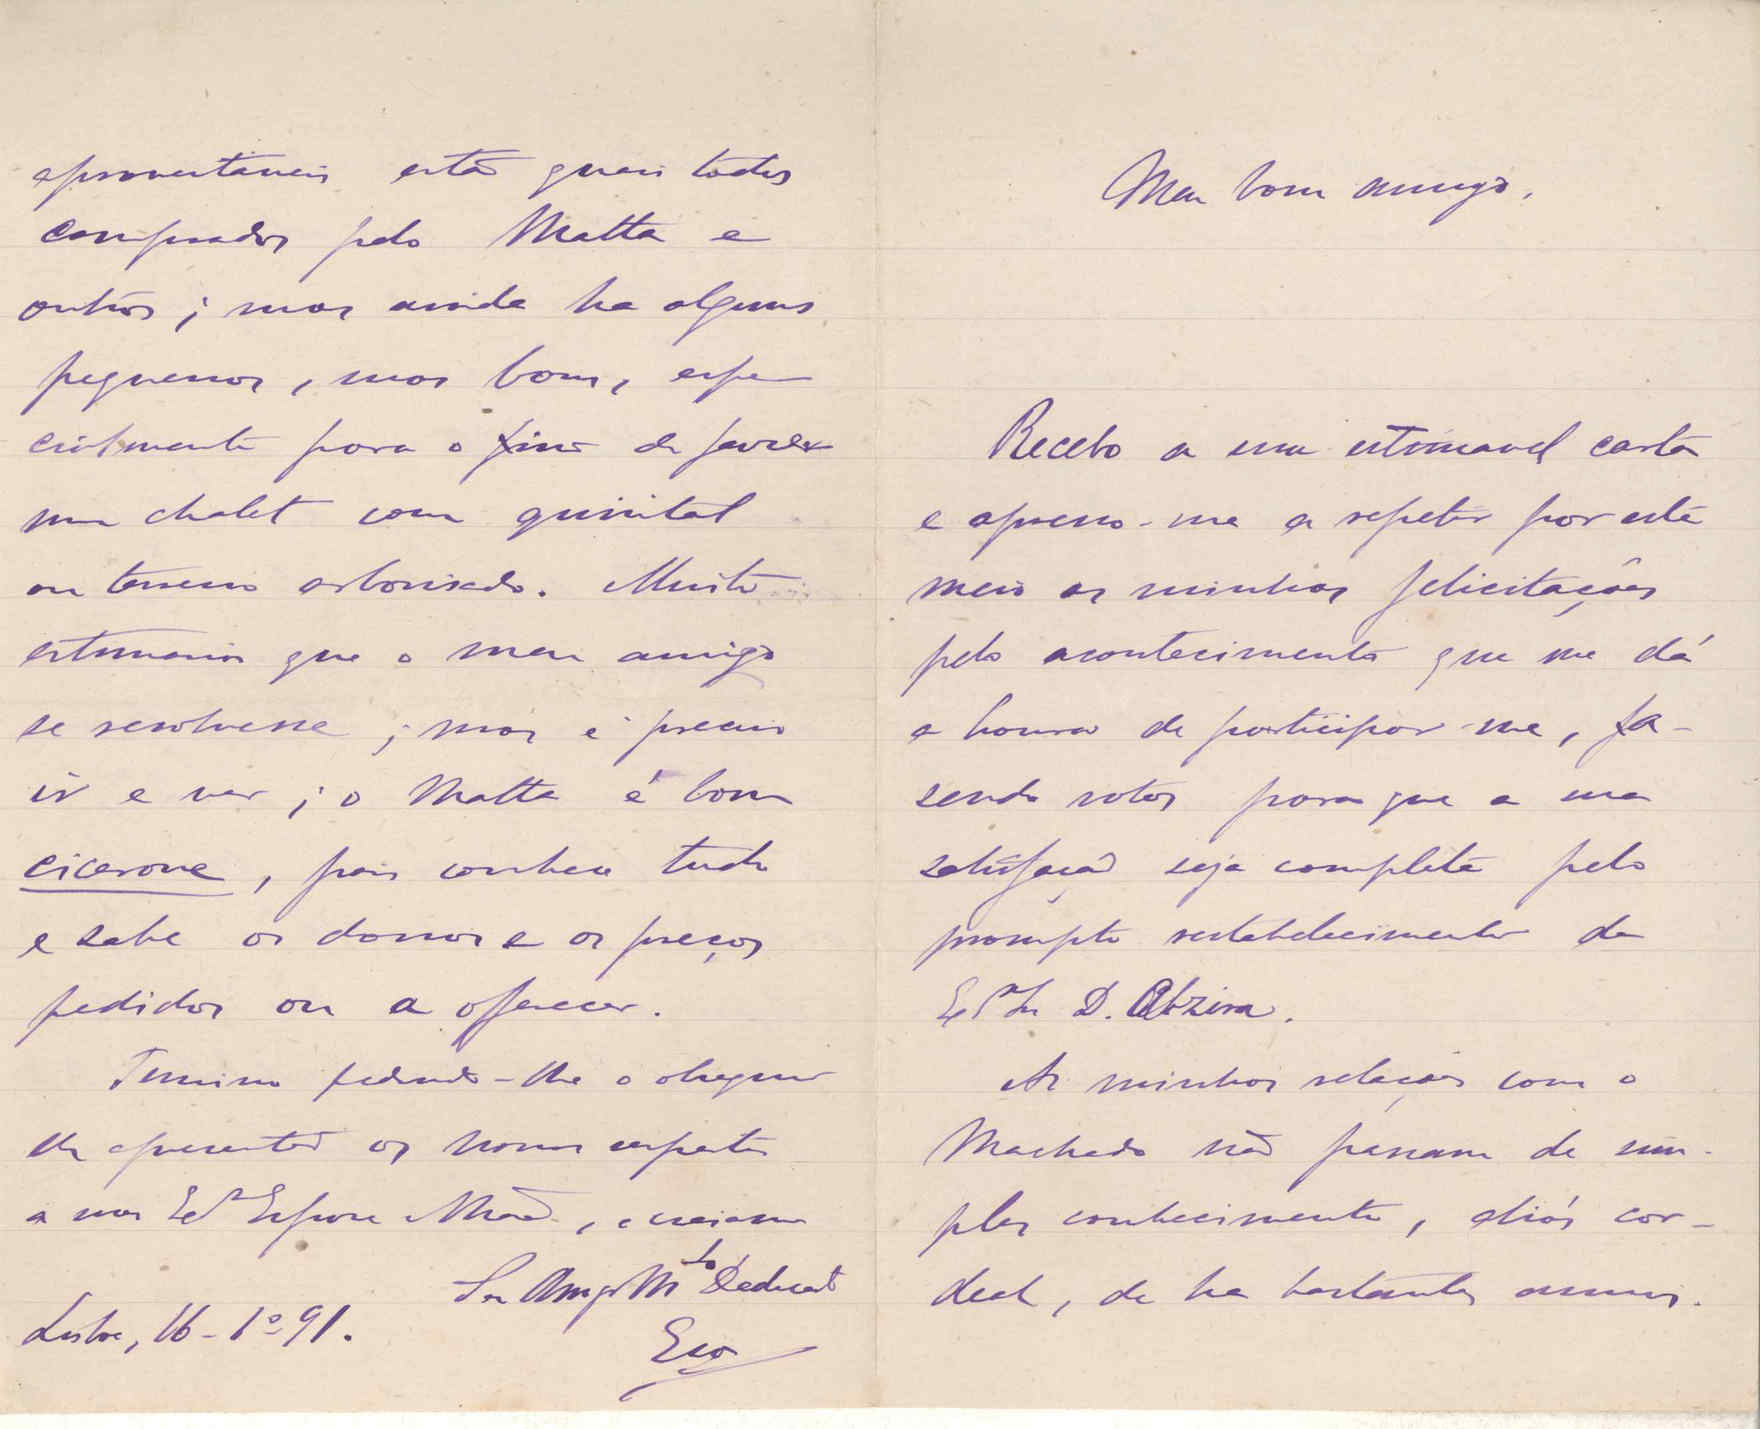 Meu bom amigo,
Recebo a sua estimavel carta
e apresso-me a repetir por este
meio as minhas felicitações
pelo acontecimento que me dá
a honra de participar-me, fa-
sendo votos para que a sua
satisfação seja completa pelo
prompto restabelecimento da
D. Alzira.
As minhas relações com o
Machado não passam de sim-
ples conhecimento, aliás cor-
deal, de ha bastantes annos.
aproveitaveis estão quasi todos
comprados pelo Matta e
outros; mas ainda ha alguns
pequenos, mas bons, espe-
cialmente para o fim de fazer
um chalet com quintal
ou terreno arborisado. Muito
estimaria que o meu amigo
se resolvesse; mas é preciso
ir e ver; o Matta é bom
cicerone, pois conhece tudo
e sabe os donos e os preços
pedidos ou a offerecer.
Termino pedindo-lhe o obsequio
de apresentar os nossos respeitos
a sua Esposa e Mãe, e creia-me
Seu Amgo Mto Dedicado
Lisboa, 16-1º-91.